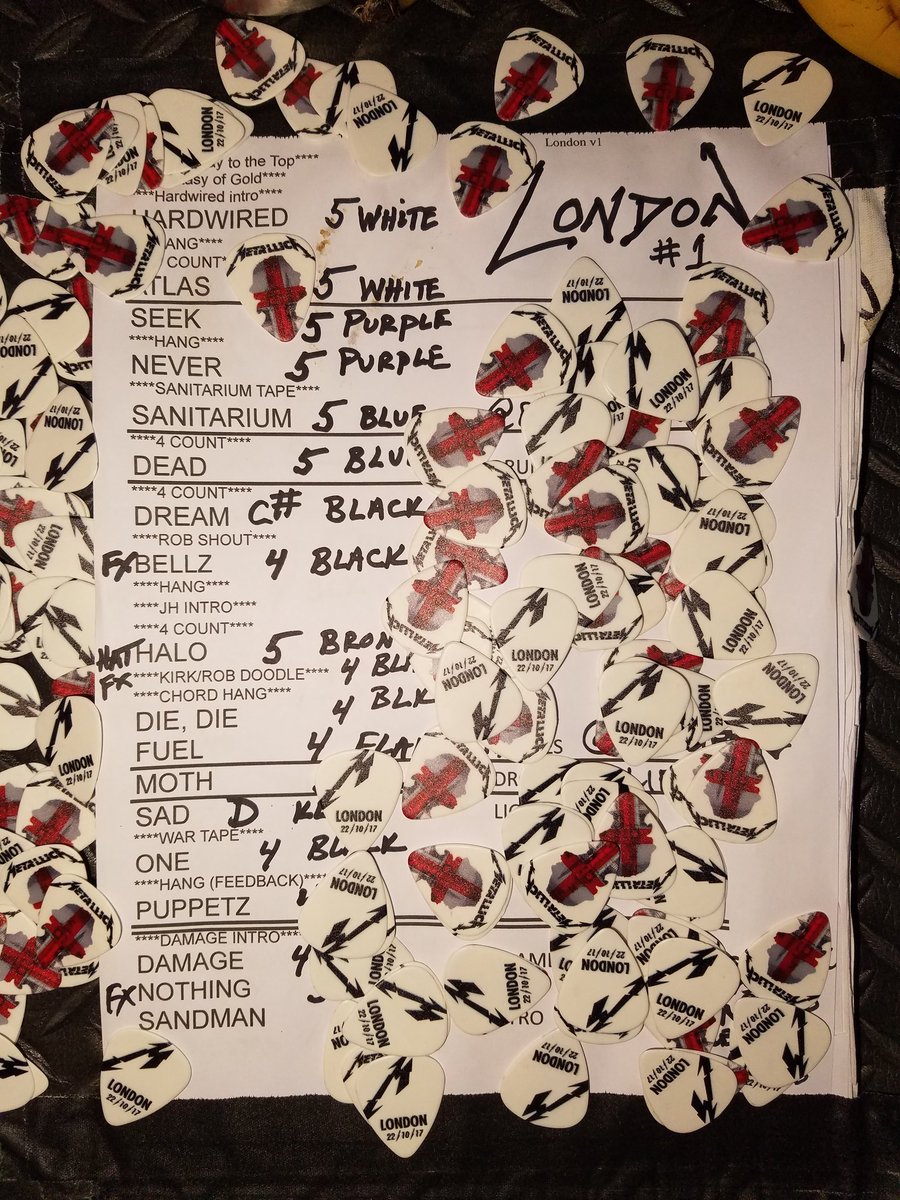 London v1
to the Top****
of Gold****
***Hardwired intro****
LONDON
HARDWIRED 5 WHITE
#1
HANG****
COUNT*
ATLAS 5 WHITE
SEEK 5 PURPLE
****HANG****
NEVER 5 PURPLE
****SANITARIUM TAPE****
SANITARIUM 5 BLUE
****4 COUNT****
DEAD 5 BLU
****4 COUNT****
DREAM C# BLACK
****ROB SHOUT****
FX BELLZ 4 BLACK
****HANG****
****JH INTRO****
****4 COUNT****
HAT HALO 5 BRON
FX ****KIRK/ROB DOODLE**** 4 BL
****CHORD HANG****
DIE, DIE 4 BLK
FUEL 4
MOTH
SAD D
****WAR TAPE****
ONE 4 BLACK
****HANG (FEEDBACK)****
PUPPETZ
****DAMAGE INTRO****
DAMAGE 4
FX NOTHING
SANDMAN
METALLICA
LONDON
22/10/17